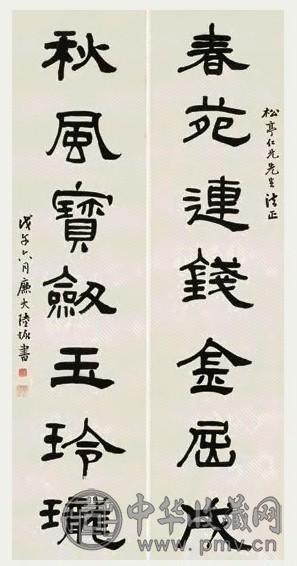 松亭仁兄先生法正
春苑連錢金屈戌
秋風寶劔玉玲瓏
戊午六月廉夫陸恢書
中华收藏网
www.pmv.cn